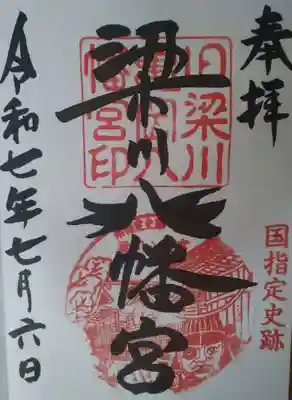 奉拝
国指定史跡
梁川八幡宮
旧梁川
幡宮印
令和七年七月六日